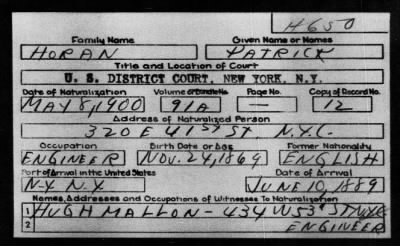 H650
Family Name Given Name or Names
HORAN PATRICK
Title and Location of Court
U. S. DISTRICT COURT, NEW YORK, N.Y.
Date of Naturalization Volume or Bundle No. Page No. Copy of Record No.
MAY 8, 1900 91A — 12
Address of Naturalized Person
320 E 41ST ST. N.Y.C.
Occupation Birth Date or Age Former Nationality
ENGINEER NOV. 24, 1869 ENGLISH
Port of Arrival in the United States Date of Arrival
N-Y N.Y JUNE 10, 1889
Names, Addresses and Occupations of Witnesses To Naturalization
1 HUGH MALLON - 434 W 53 ST NYC
2 ENGINEER